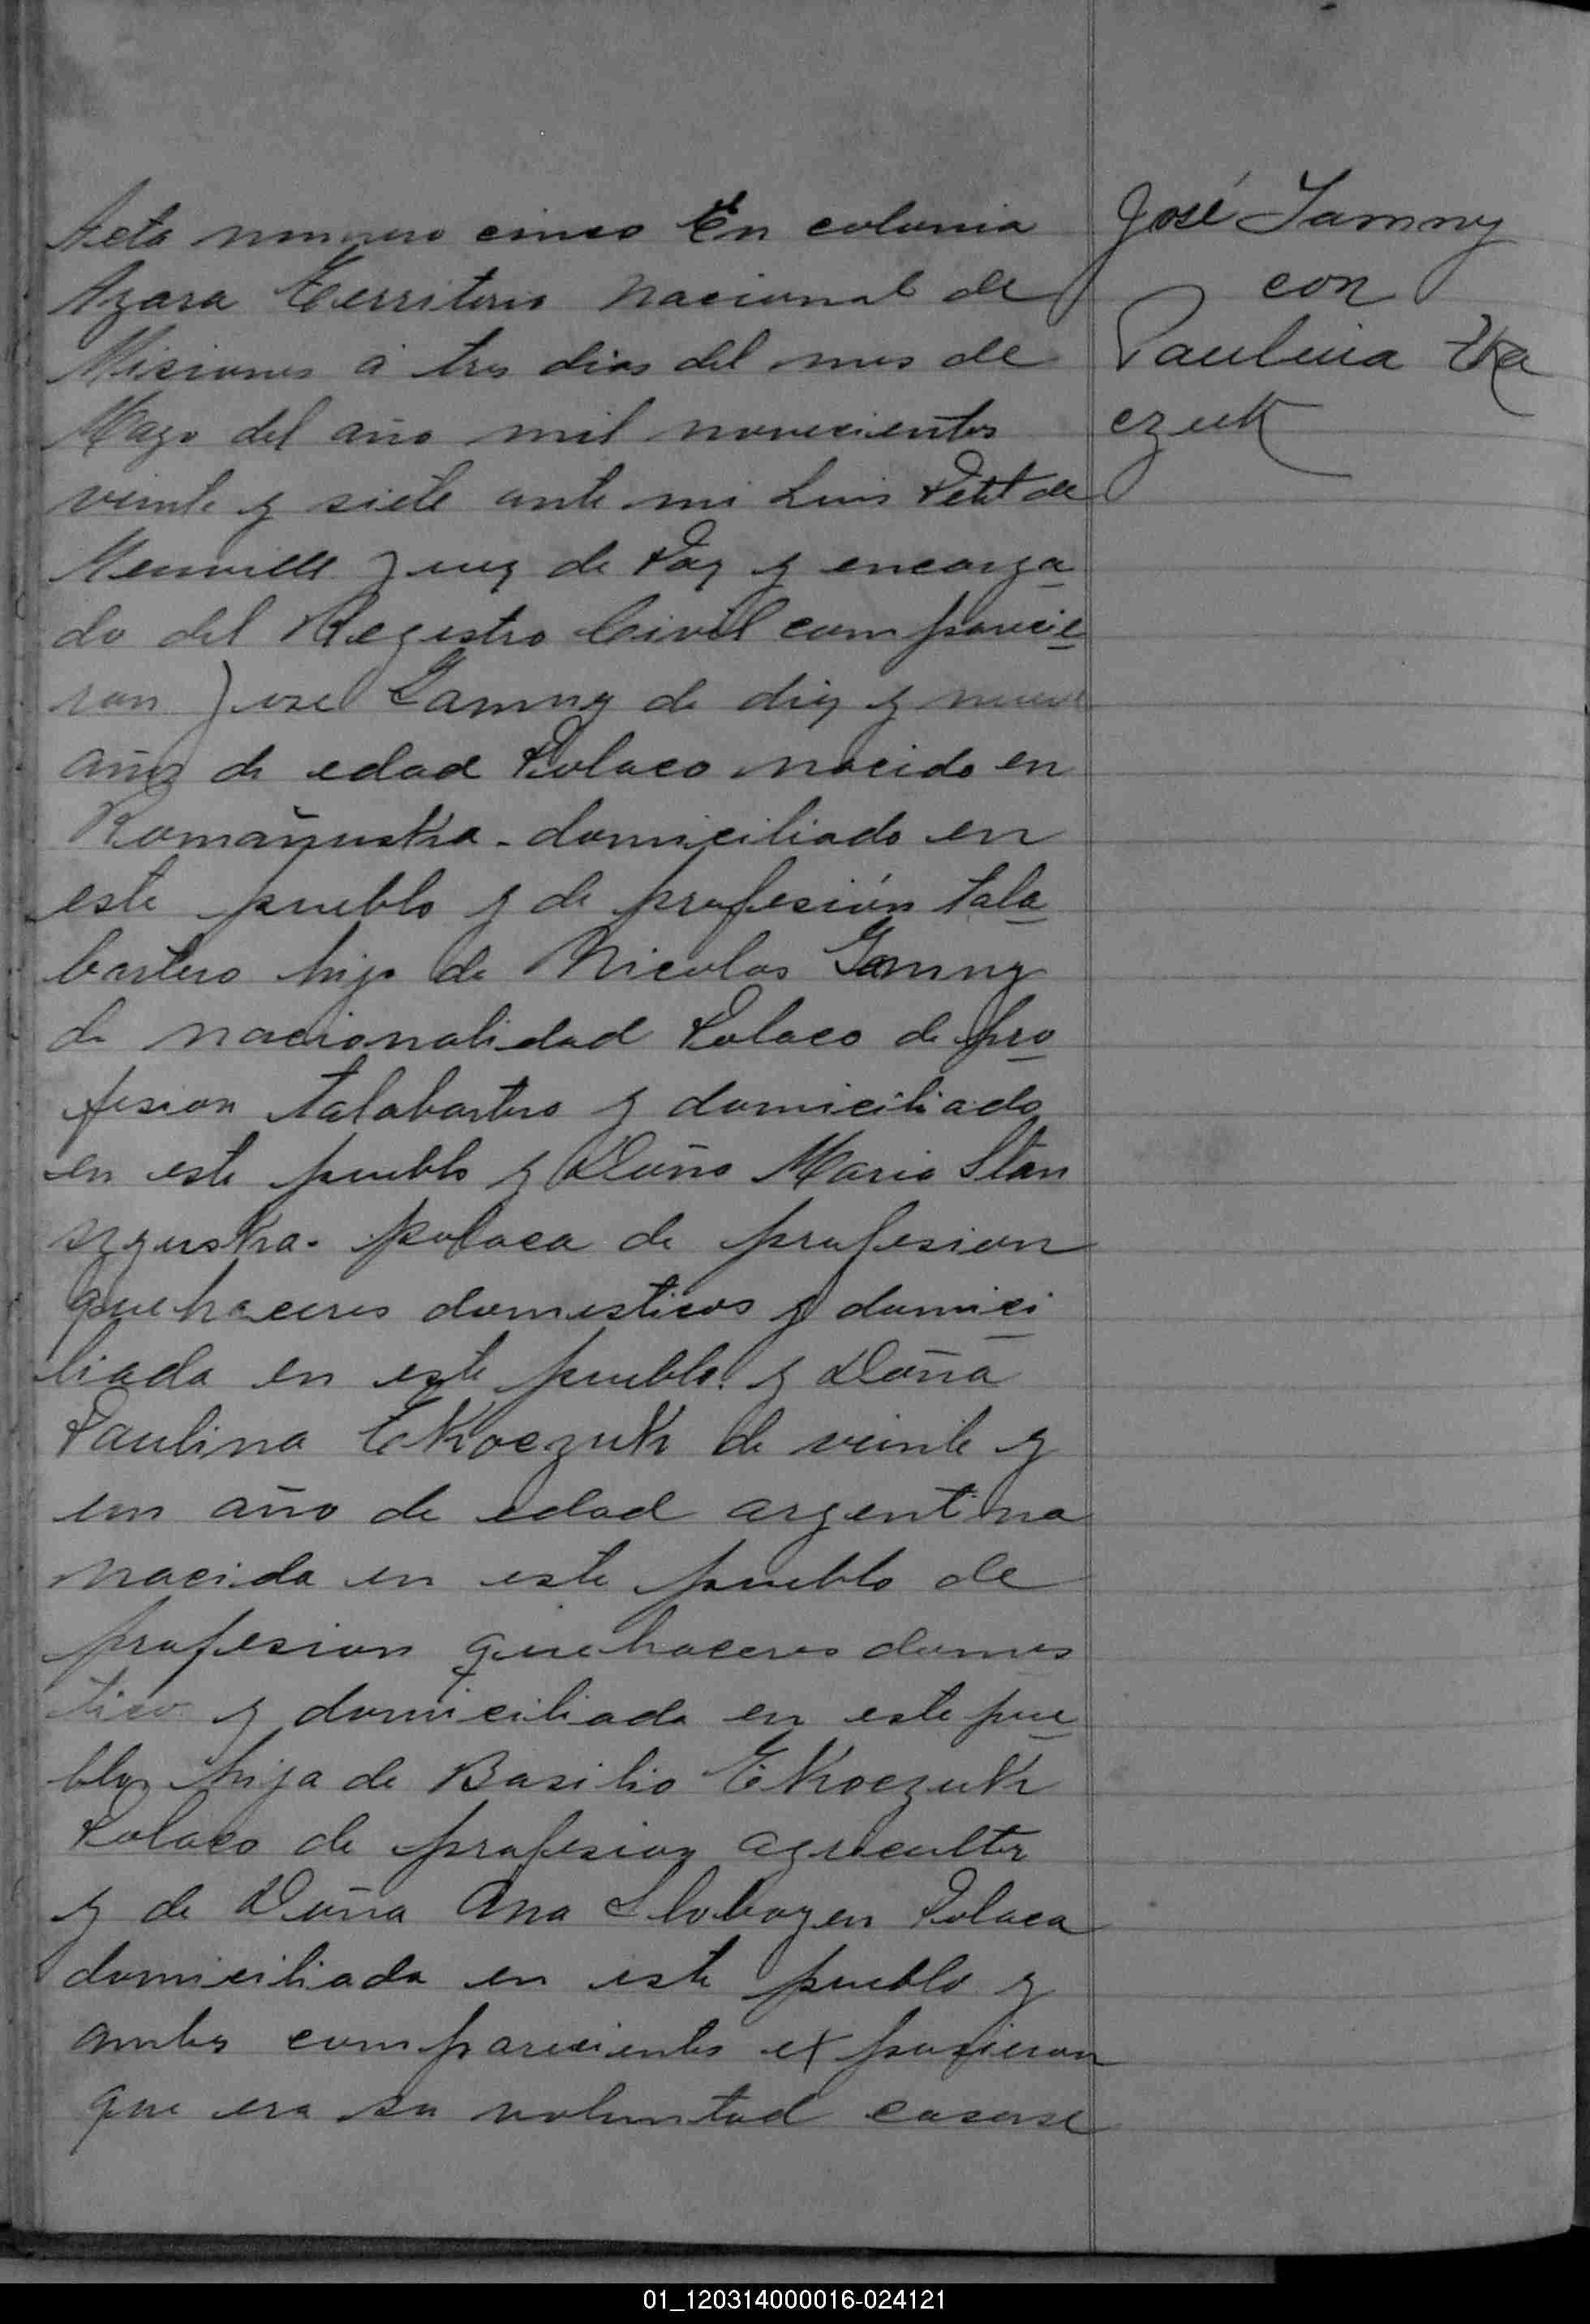 Acta numero cinco En colonia
Azara Territorio nacional de
Misiones á tres dias del mes de
Mayo del año mil novecientos
veinte y siete ante mi Luis Petit de
Meurville Juez de Paz y encarga
do del Registro Civil comparecie
ron José Tamny de diez y nueve
años de edad Polaco nacido en
domiciliado en
este pueblo y de profesión tala
bartero hijo de Nicolas Tamny
de nacionalidad Polaco de pro
fesion talabartero y domiciliado
en este pueblo y Doña Maria Stan
polaca de profesion
quehaceres domesticos y domici
liada en este pueblo. y Doña
Paulina Tkaczuk de veinte y
un año de edad argentina
nacida en este pueblo de
profesion quehaceres domes
tico y domiciliada en este pue
blo, hija de Basilio Tkaczuk
Polaco de profesion agricultor
y de Doña Ana Polaca
domiciliada en este pueblo y
ambos comparecientes expusieron
que era su voluntad casarse
José Tamny
con
Paulina Tka
czuk
01_120314000016-024121